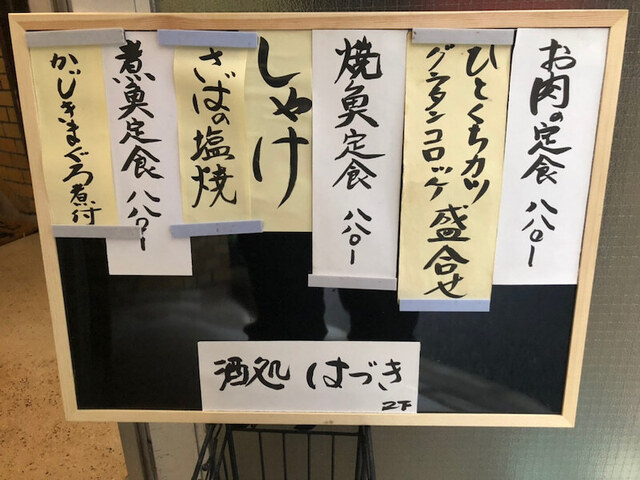 お肉の定食 八八〇ー
ひとくちカツ
グラタンコロッケ 盛合せ
焼魚定食 八八〇ー
しゃけ
さばの塩焼
煮魚定食 八八〇ー
かじきまぐろ煮付
酒処 はづき
2F